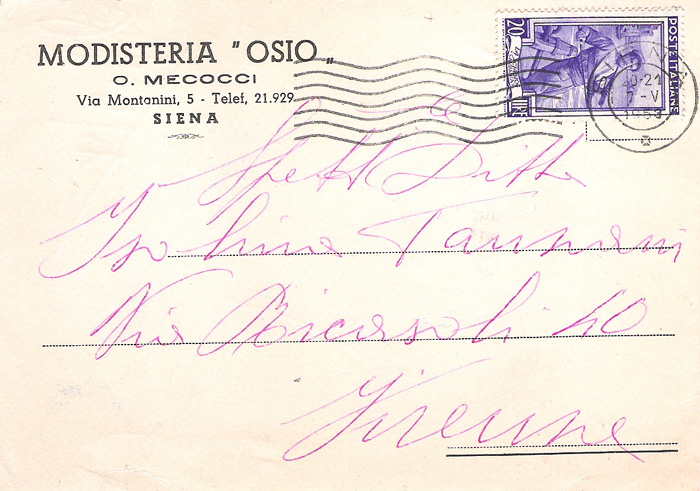 MODISTERIA "OSIO"
O. MECOCCI
Via Montanini, 5 - Telef. 21.929
SIENA
20
LIRE
POSTE ITALIANE
SIENA
20-21
7-V
1953
Spett Ditta
Isolina Tannani
Via Ricasoli 40
Firenze